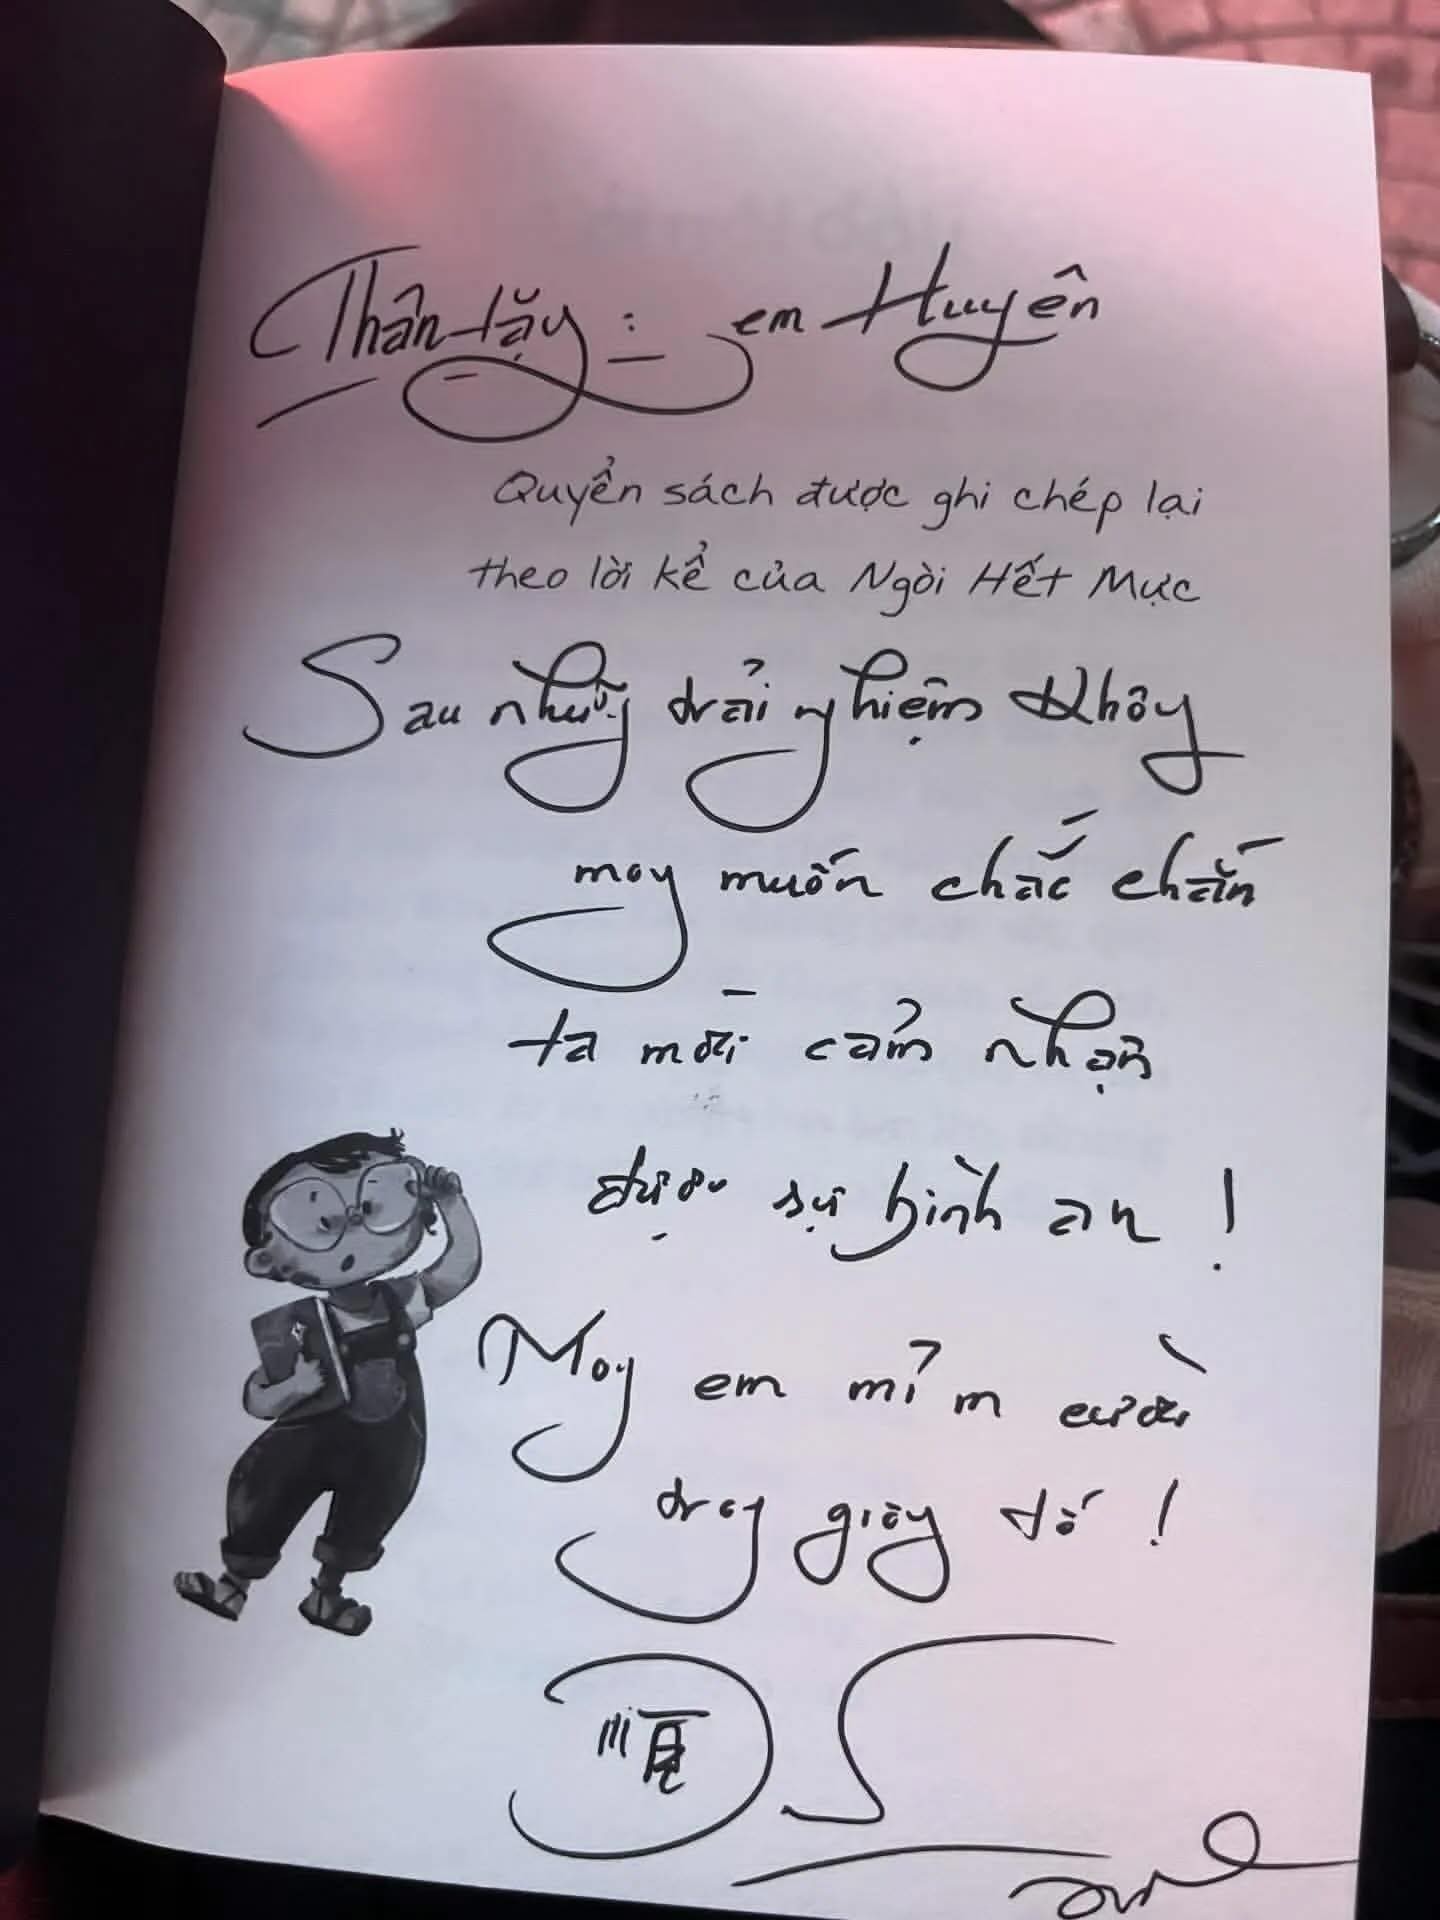 Thân tặng : em Huyên
Quyển sách được ghi chép lại
theo lời kể của Ngòi Hết Mực
Sau những trải nghiệm không
mong muốn chắc chắn
ta mới cảm nhận
được sự bình an !
Mong em mỉm cười
trong giông tố !
順